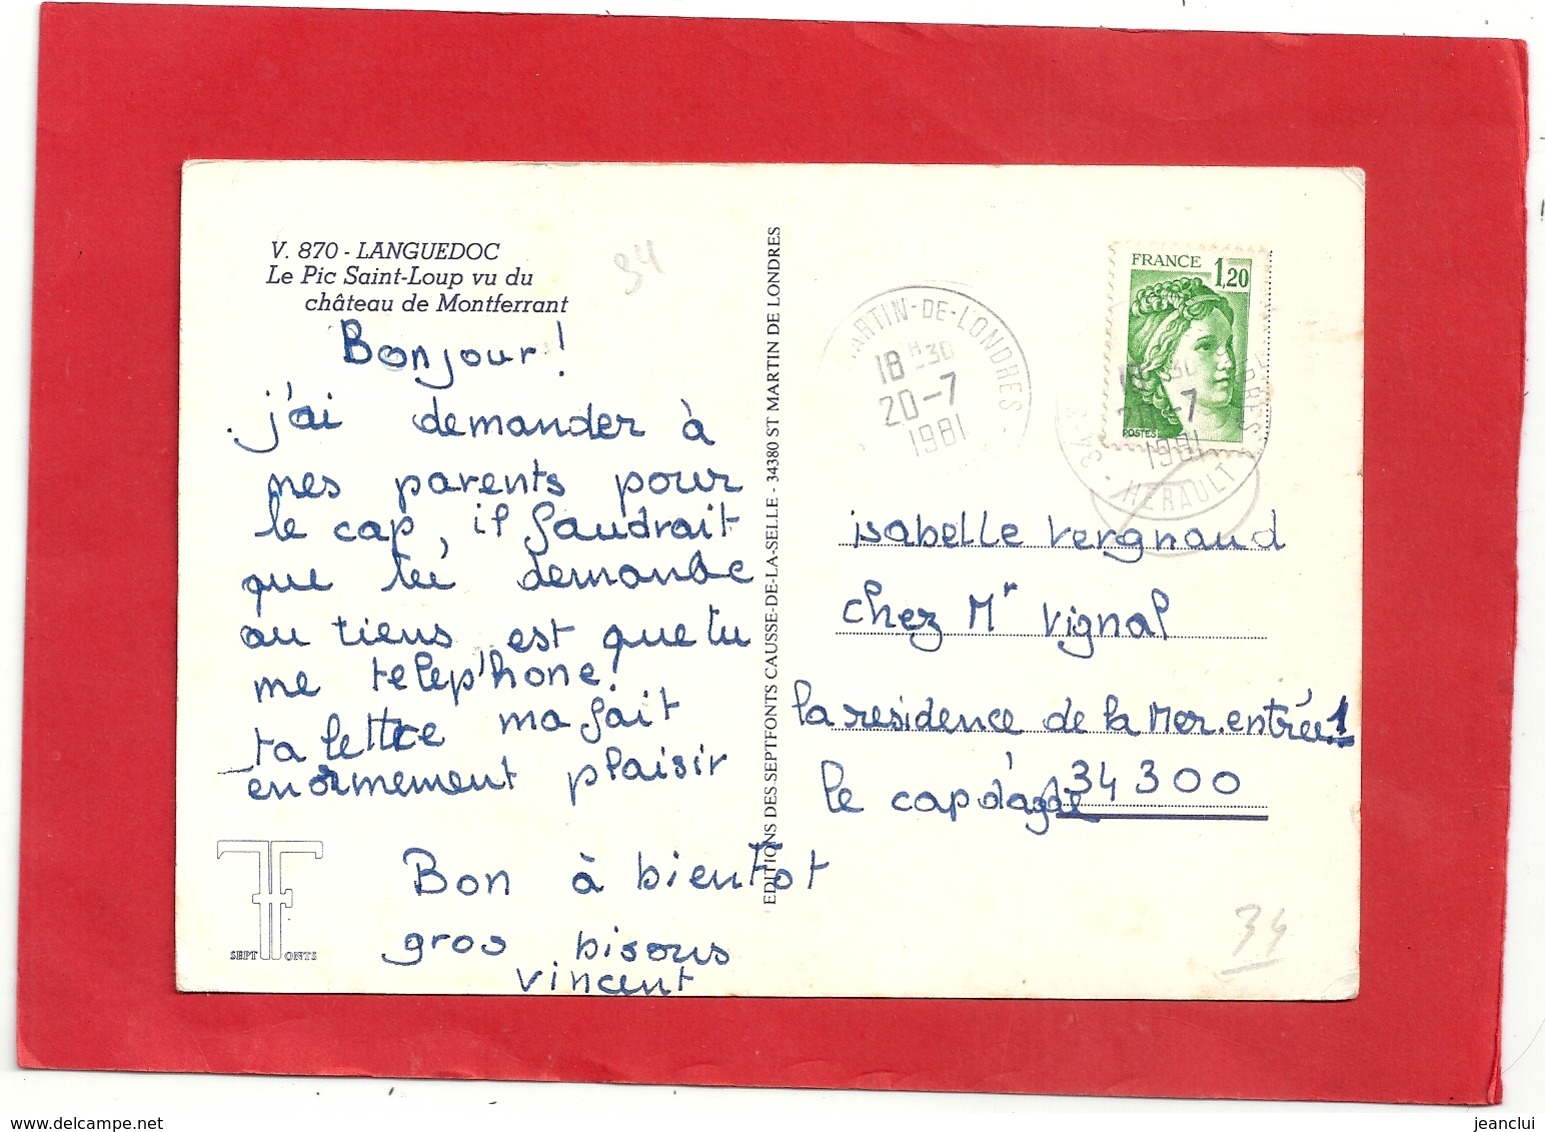 V. 870 - LANGUEDOC
Le Pic Saint-Loup vu du
château de Montferrant
34
Bonjour!
j'ai demander à
mes parents pour
le cap, il faudrait
que tu demande
au tiens est que tu
me telep'hone!
ta lettre ma fait
enormement plaisir
Bon à bientot
gros bisous
vincent
SEPT FONTS
EDITIONS DES SEPTFONTS CAUSSE-DE-LA-SELLE - 34380 ST MARTIN DE LONDRES
ARTIN-DE-LONDRES
18 H 30
20-7
1981
FRANCE 1,20
POSTES
30
20-7
1981
34 - HERAULT
DRES
isabelle Vergnaud
chez Mr Vignal
la residence de la Mer. entrée 1
le cap d'agde 34300
34
delcampe.net
jeanclui